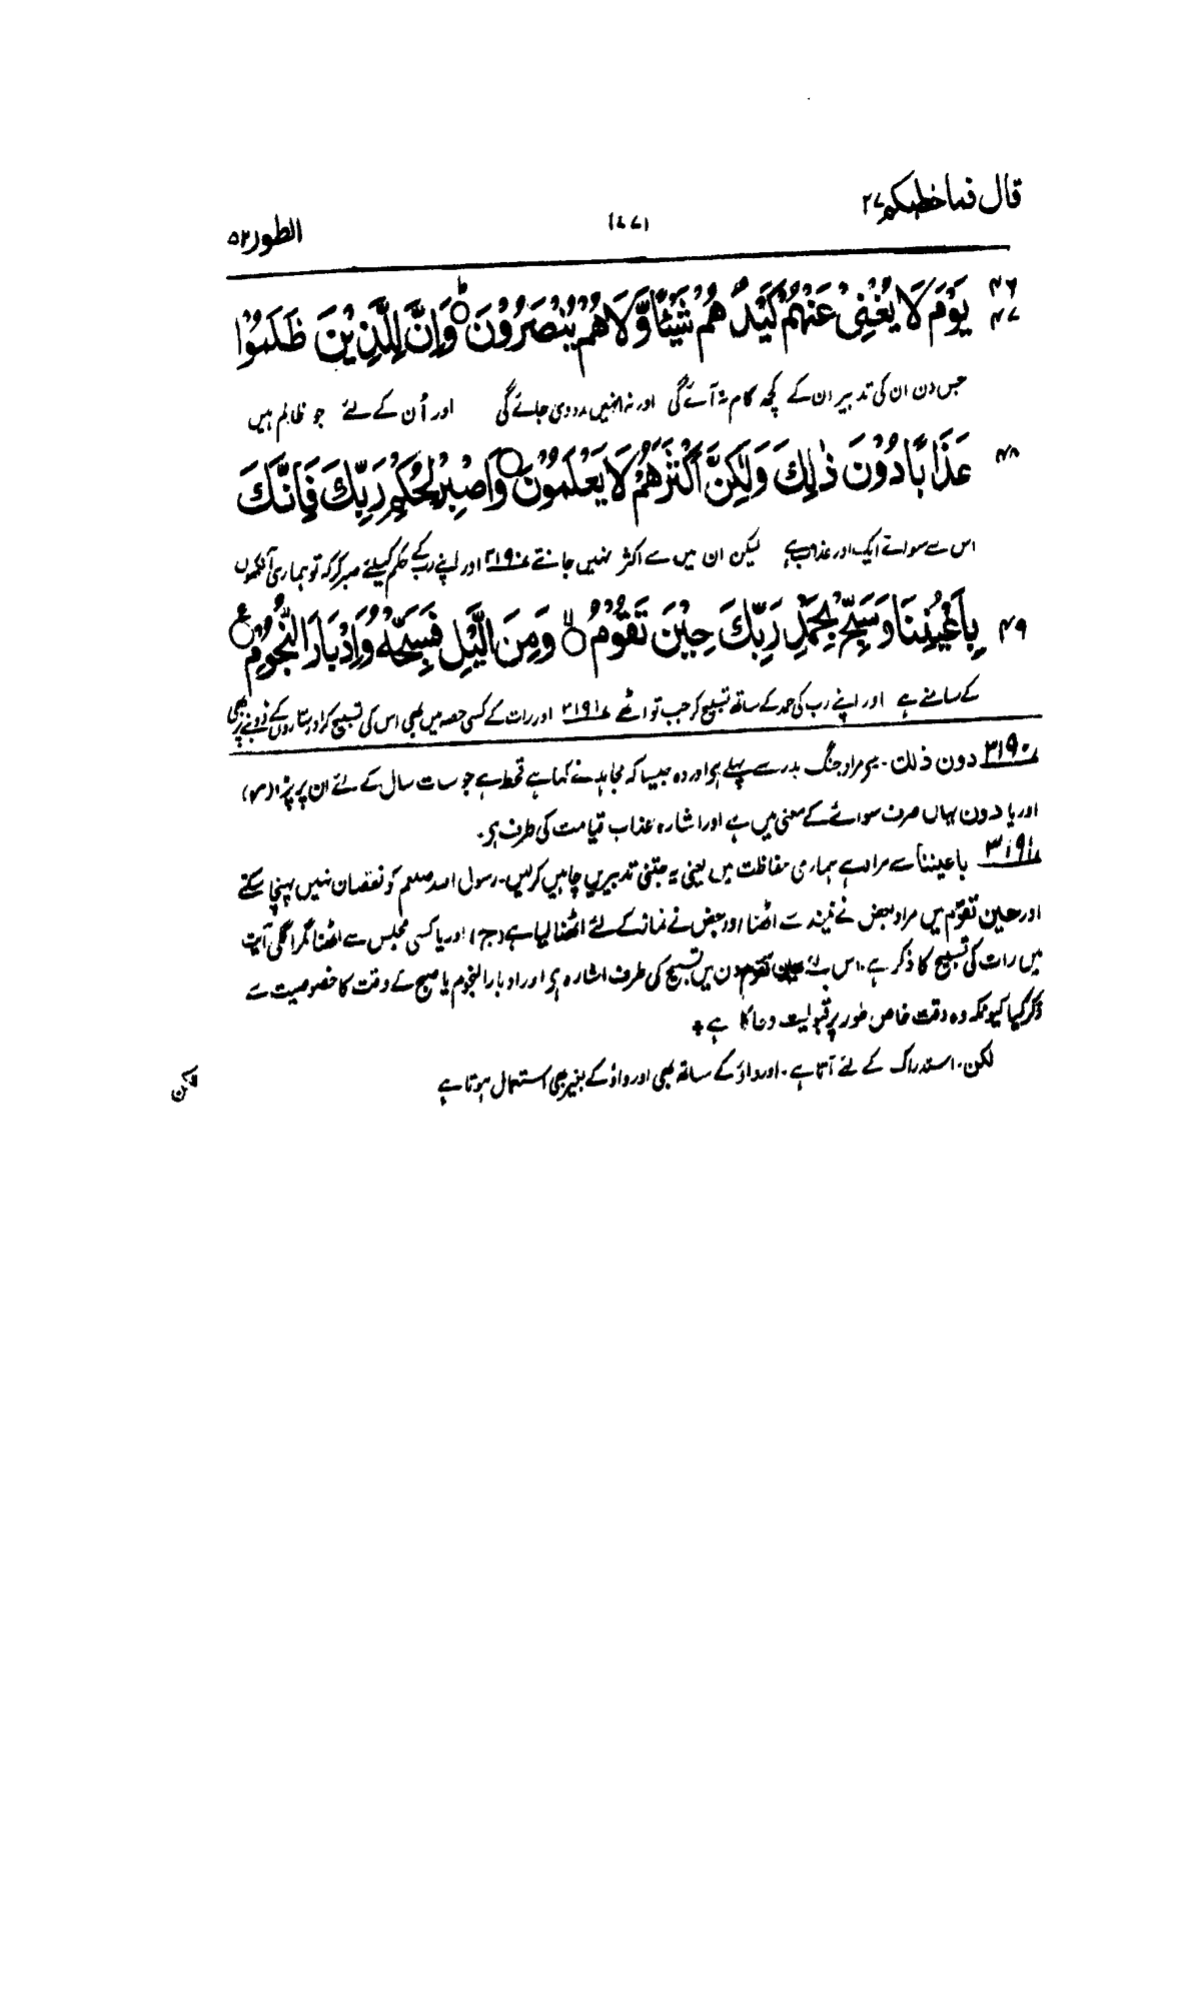 قال فما خطبکم ۲۷
(٤٧)
الطور ۵۲
۴۶ ۴۷ یَوْمَ لَا یُغْنِیْ عَنْهُمْ كَیْدُهُمْ شَیْئًا وَّلَا هُمْ یُنْصَرُوْنَ ۝ وَاِنَّ لِلَّذِیْنَ ظَلَمُوْا
جس دن ان کی تدبیر ان کے کچھ کام نہ آئے گی اور نہ انہیں مدد دی جائے گی اور اُن کے لئے جو ظالم ہیں
۴۸ عَذَابًا دُوْنَ ذٰلِكَ وَلٰكِنَّ اَكْثَرَهُمْ لَا یَعْلَمُوْنَ ۝ وَاصْبِرْ لِحُكْمِ رَبِّكَ فَاِنَّكَ
اس سے سوائے ایک اور عذاب ہے لیکن ان میں سے اکثر نہیں جانتے ۳۱۹۰ اور اپنے رب کے حکم کیلئے صبر کر کہ تو ہماری آنکھوں
۴۹ بِاَعْیُنِنَا وَسَبِّحْ بِحَمْدِ رَبِّكَ حِیْنَ تَقُوْمُ ۝ وَمِنَ الَّیْلِ فَسَبِّحْهُ وَاِدْبَارَ النُّجُوْمِ ۝
کے سامنے ہے اور اپنے رب کی حمد کے ساتھ تسبیح کر جب تو اٹھے ۳۱۹۱ اور رات کے کسی حصہ میں بھی اس کی تسبیح کر اور ستاروں کے ڈوبنے پر بھی
۳۱۹۰ دون ذلک۔ یہی مراد جنگ بدر سے پہلے ہے اور وہ جیسا کہ مجاہد نے کہا ہے قحط ہے جو سات سال کے لئے ان پر پڑا (م)
اور یا دون یہاں صرف سوائے کے معنی میں ہے اور اشارہ عذاب قیامت کی طرف ہے۔
۳۱۹۱ باعیننا سے مراد ہے ہماری حفاظت میں یعنی یہ جتنی تدبیریں چاہیں کرلیں۔ رسول اللہ صلعم کو نقصان نہیں پہنچا سکتے
اور حین تقوم میں مراد بعض نے نیند سے اٹھنا اور بعض نے نماز کے لئے اٹھنا لیا ہے (ج) اور یا کسی مجلس سے اٹھنا مگر اگلی آیت
میں رات کی تسبیح کا ذکر ہے اس لئے حین تقوم دن میں تسبیح کی طرف اشارہ ہے اور ادبار النجوم یا صبح کے وقت کا خصوصیت سے
ذکر کیا کیونکہ وہ وقت خاص طور پر قبولیت دعا کا ہے +
لکن۔ استدراک کے لئے آتا ہے۔ اور واؤ کے ساتھ بھی اور واؤ کے بغیر بھی استعمال ہوتا ہے
لکن